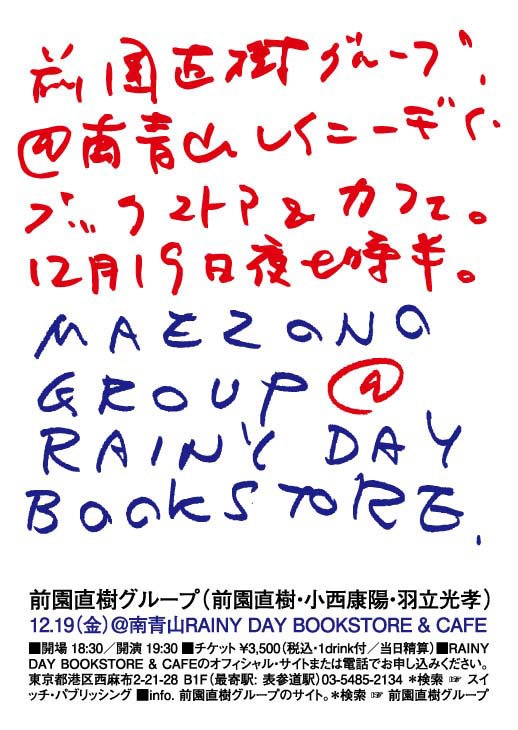 前園直樹グループ、
@南青山レイニーデイ
ブックストア&カフェ。
12月19日夜七時半。
MAEZONO
GROUP @
RAINY DAY
BOOKSTORE.
前園直樹グループ（前園直樹・小西康陽・羽立光孝）
12.19（金）@南青山RAINY DAY BOOKSTORE & CAFE
■開場 18:30／開演 19:30 ■チケット ¥3,500（税込・1drink付／当日精算）■RAINY
DAY BOOKSTORE & CAFEのオフィシャル・サイトまたは電話でお申し込みください。
東京都港区西麻布2-21-28 B1F（最寄駅: 表参道駅）03-5485-2134 ＊検索 ☞ スイ
ッチ・パブリッシング ■info. 前園直樹グループのサイト。＊検索 ☞ 前園直樹グループ